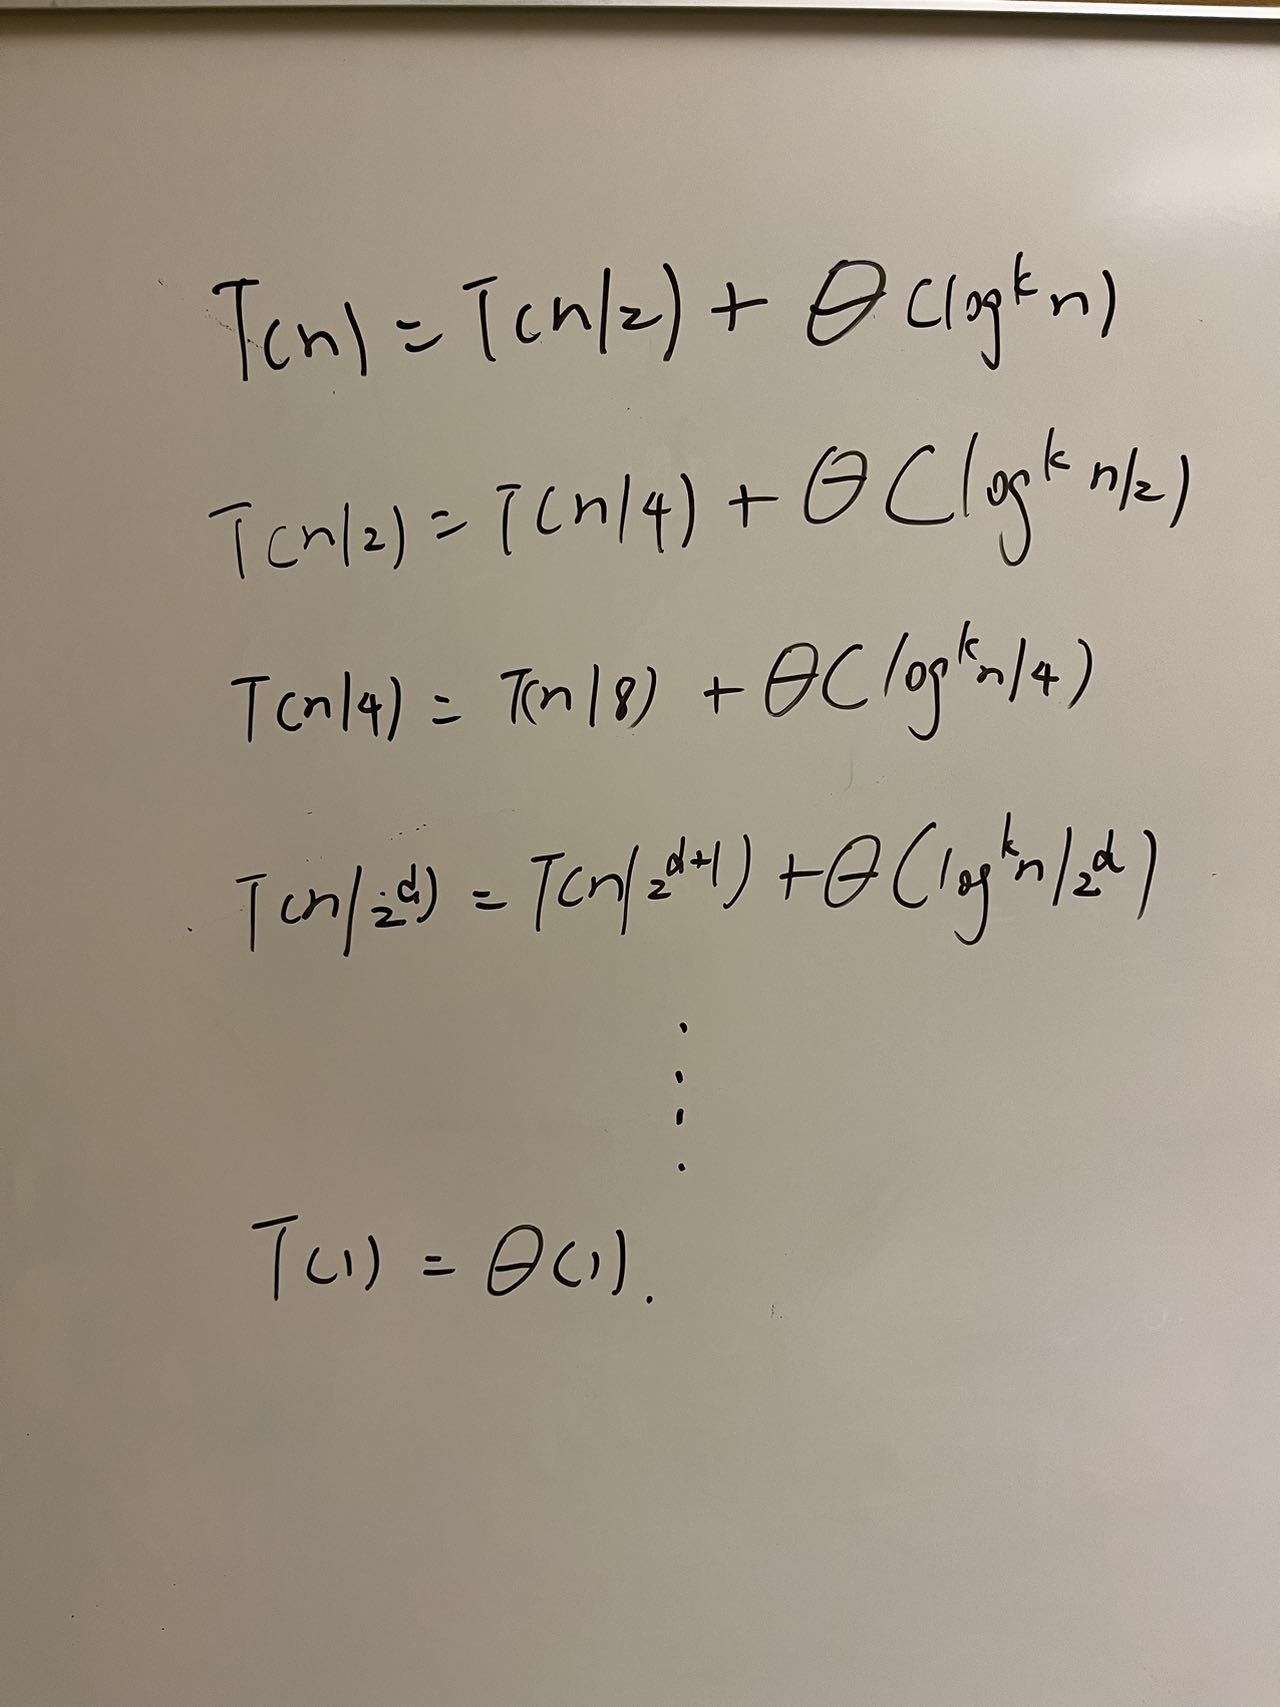 T(n) = T(n/2) + Θ(logᵏ n)
T(n/2) = T(n/4) + Θ(logᵏ n/2)
T(n/4) = T(n/8) + Θ(logᵏ n/4)
T(n/2ᵈ) = T(n/2ᵈ⁺¹) + Θ(logᵏ n/2ᵈ)
⋮
T(1) = Θ(1).